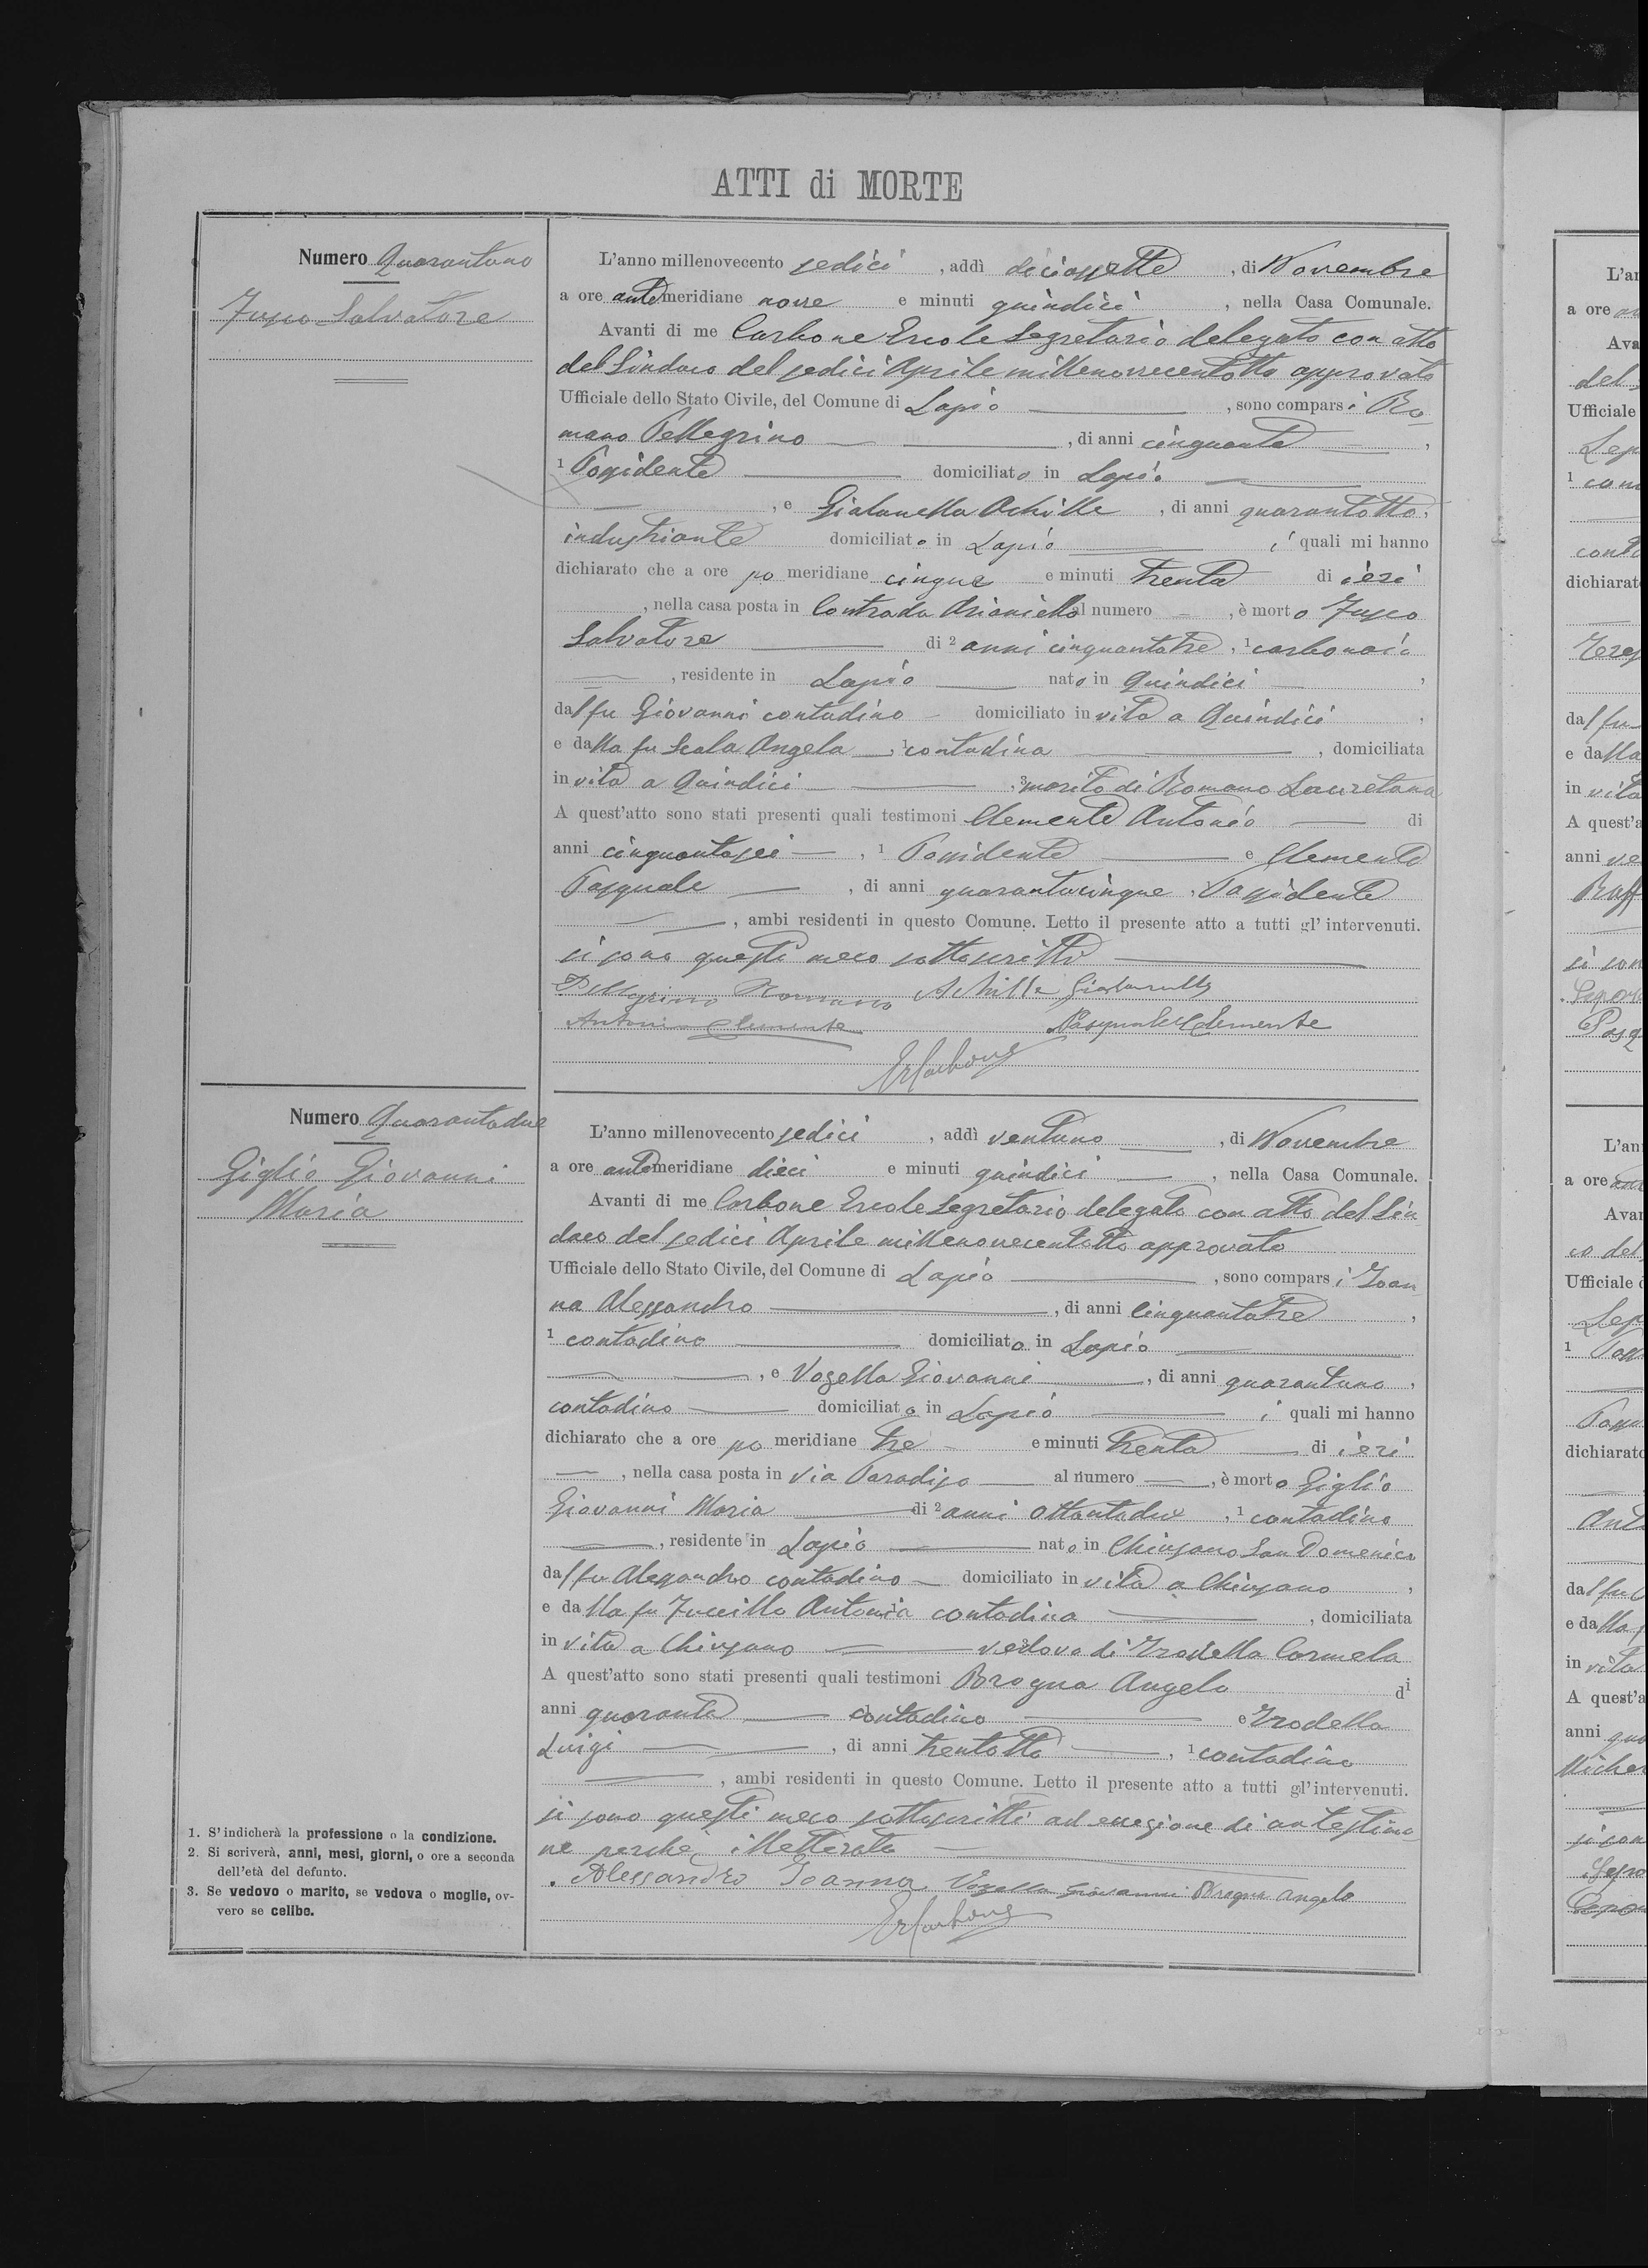 ATTI di MORTE
Numero Quarantuno
Fusco Salvatore
L'anno millenovecento sedici , addì diciassette , di Novembre
a ore antemeridiane nove e minuti quindici , nella Casa Comunale.
Avanti di me Carbone Ercole Segretario delegato con atto
del Sindaco del sedici Aprile millenovecentotto approvato
Ufficiale dello Stato Civile, del Comune di Lapio , sono comparsi Ro-
mano Pellegrino , di anni cinquanta ,
1 Possidente domiciliato in Lapio
, e Gialanella Achille , di anni quarantotto,
industriante domiciliato in Lapio i quali mi hanno
dichiarato che a ore po meridiane cinque e minuti trenta di ieri
, nella casa posta in Contrada Arianiello al numero – , è morto Fusco
Salvatore di 2 anni cinquantatre , 1 carbonaio
, residente in Lapio nato in Quindici ,
dal fu Giovanni contadino domiciliato in vita a Quindici ,
e dalla fu Scala Angela , 1 contadina , domiciliata
in vita a Quindici , 3 marito di Romano Lauretana
A quest'atto sono stati presenti quali testimoni Clemente Antonio di
anni cinquantasei , 1 Possidente e Clemente
Pasquale , di anni quarantacinque , Possidente
, ambi residenti in questo Comune. Letto il presente atto a tutti gl' intervenuti.
si sono questi meco sottoscritti
Pellegrino Romano Achille Gialanella
Antonio Clemente Pasquale Clemente
ErCarbone
Numero Quarantadue
Giglio Giovanni
Maria
L'anno millenovecento sedici , addì ventuno , di Novembre
a ore antemeridiane dieci e minuti quindici , nella Casa Comunale.
Avanti di me Carbone Ercole Segretario delegato con atto del Sin-
daco del sedici Aprile millenovecentotto approvato
Ufficiale dello Stato Civile, del Comune di Lapio , sono comparsi Ioan
na Alessandro , di anni cinquantatre ,
1 contadino domiciliato in Lapio
, e Vozella Giovanni , di anni quarantuno ,
contadino domiciliato in Lapio i quali mi hanno
dichiarato che a ore po meridiane tre e minuti trenta di ieri
, nella casa posta in Via Paradiso al numero – , è morto Giglio
Giovanni Maria di 2 anni ottantadue , 1 contadino
, residente in Lapio nato in Chiusano San Domenico
dal fu Alessandro contadino domiciliato in vita a Chiusano ,
e dalla fu Iuccillo Antonia contadina , domiciliata
in vita a Chiusano 3 vedovo di Trodella Carmela
A quest'atto sono stati presenti quali testimoni Brogna Angelo di
anni quaranta contadino e Trodella
Luigi , di anni trentotto , 1 contadino
, ambi residenti in questo Comune. Letto il presente atto a tutti gl'intervenuti.
si sono questi meco sottoscritti ad eccezione di
ne perchè illetterato
Alessandro Ioanna Vozella Giovanni Brogna Angelo
ErCarbone
1. S'indicherà la professione o la condizione.
2. Si scriverà, anni, mesi, giorni, o ore a seconda
dell'età del defunto.
3. Se vedovo o marito, se vedova o moglie, ov-
vero se celibe.